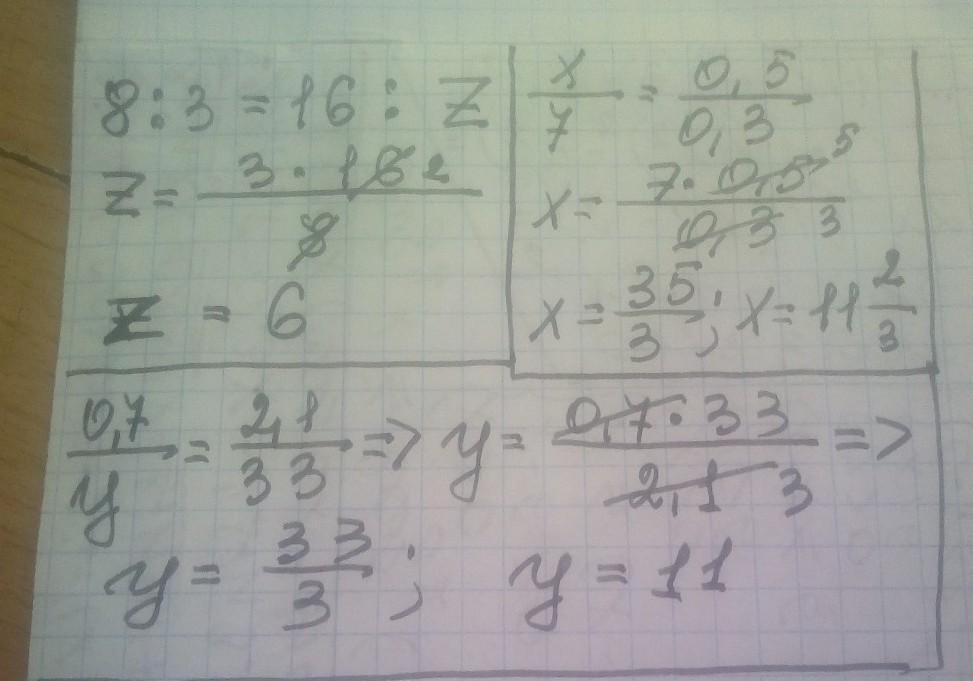 8 : 3 = 16 : Z
Z = (3 · 16 2) / 8
Z = 6
x/7 = 0,5/0,3
x = (7 · 0,5 5) / (0,3 3)
x = 35/3 ; x = 11 2/3
0,7/y = 2,1/33 => y = (0,7 · 33) / (2,1 3) =>
y = 33/3 ; y = 11